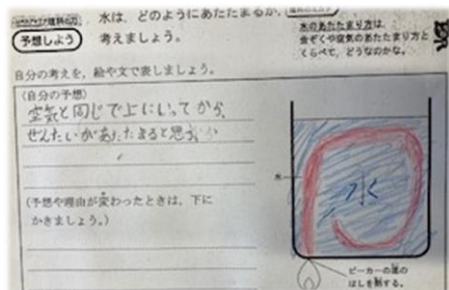 水は、どのようにあたたまるか、
予想しよう
考えましょう。
水のあたたまり方は、
金ぞくや空気のあたたまり方と
くらべて、どうなのかな。
自分の考えを、絵や文で表しましょう。
(自分の予想)
空気と同じで上にいってから、
ぜんたいがあたたまると思う。
(予想や理由が変わったときは、下に
かきましょう。)
水
水
ビーカーの底の
はしを熱する。